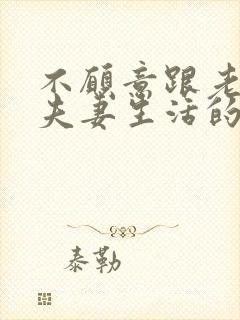 不愿意跟老
夫妻生活的
泰勒